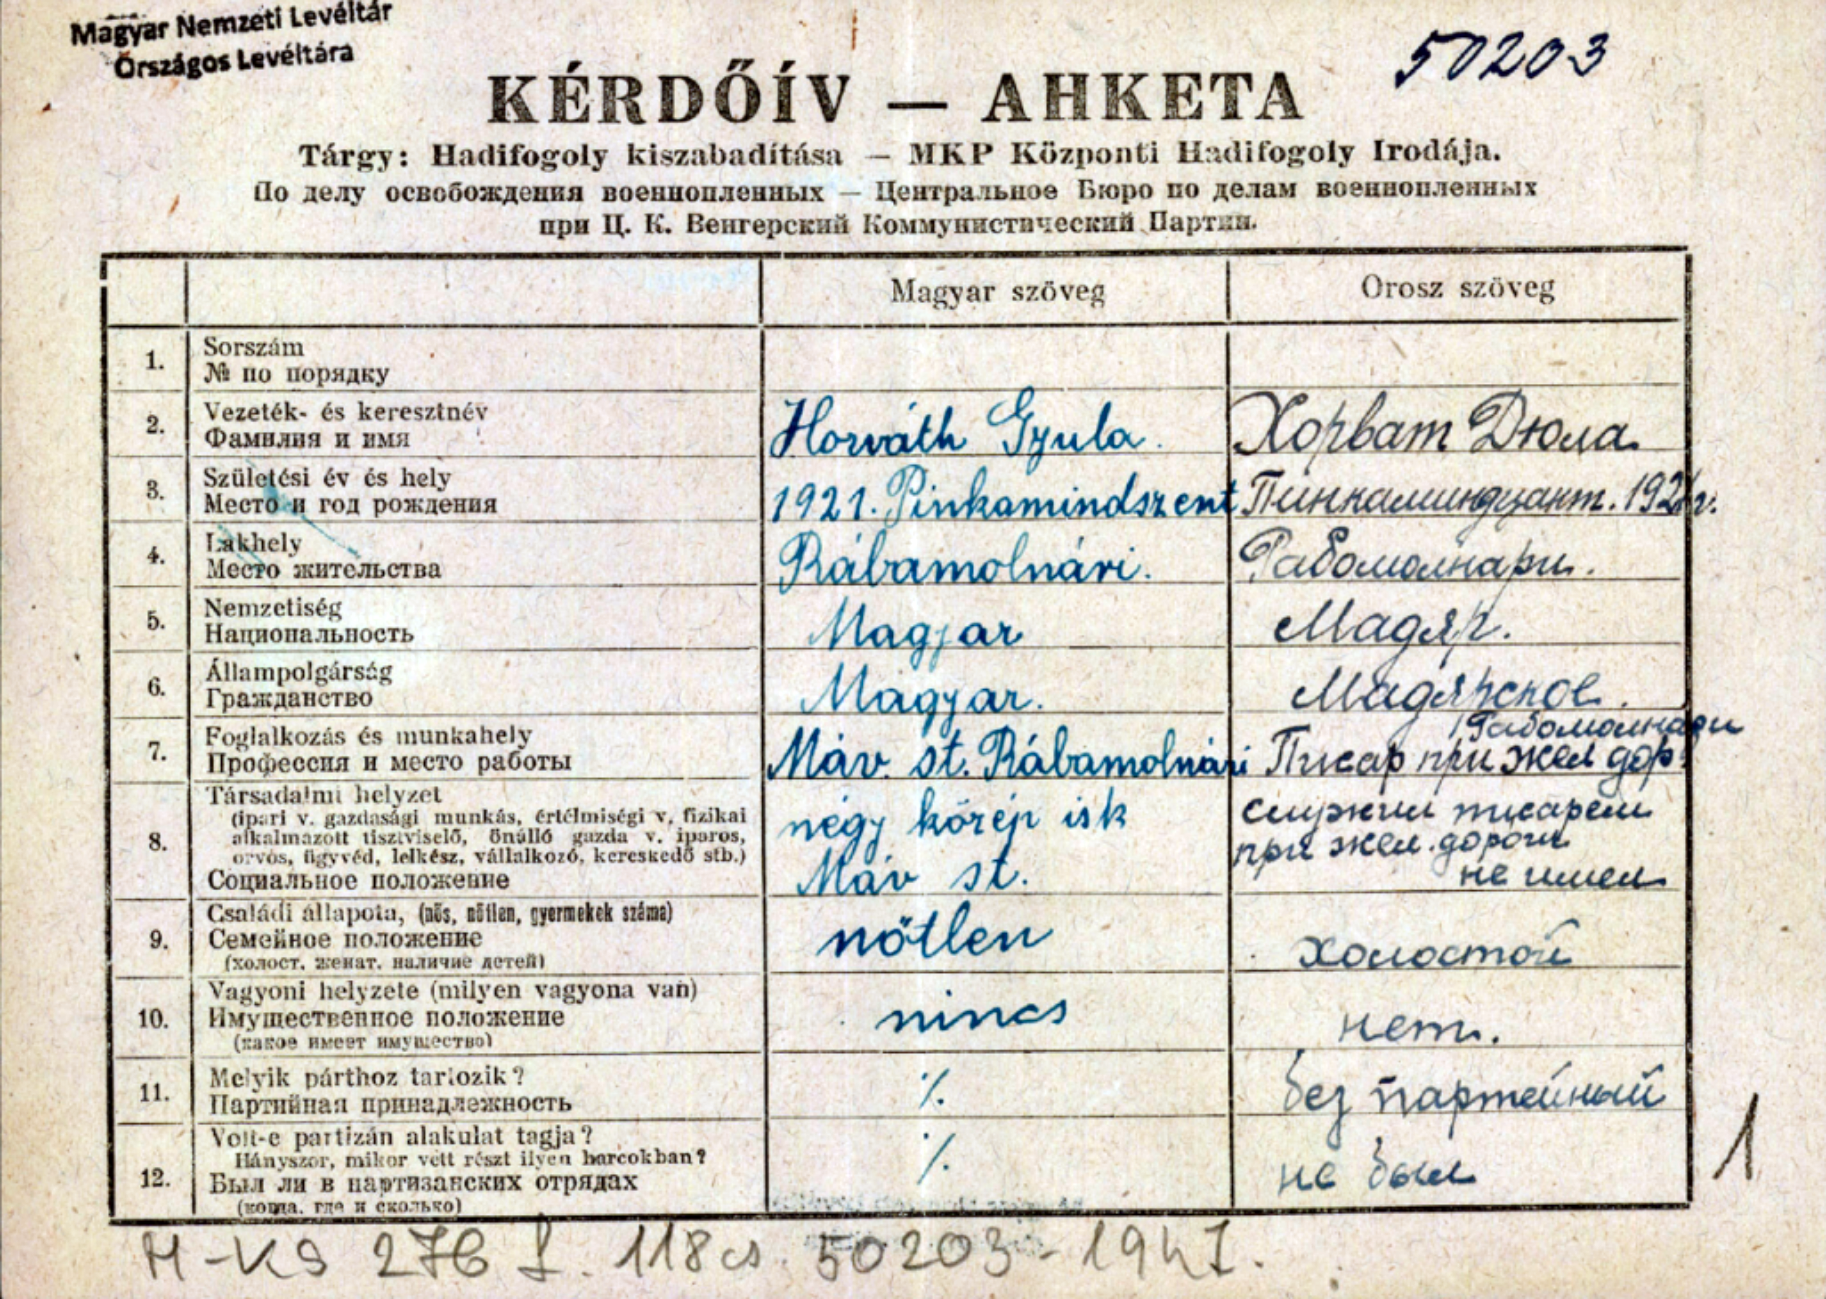 Magyar Nemzeti Levéltár
Országos Levéltára
50203
KÉRDŐÍV — АНКЕТА
Tárgy: Hadifogoly kiszabadítása — MKP Központi Hadifogoly Irodája.
По делу освобождения военнопленных — Центральное Бюро по делам военнопленных
при Ц. К. Венгерский Коммунистический Партии.
Magyar szöveg Orosz szöveg
1. Sorszám
№ по порядку
2. Vezeték- és keresztnév
Фамилия и имя
Horváth Gyula. Хорват Дюла.
3. Születési év és hely
Место и год рождения
1921. Pinkamindszent Пинкаминдзент. 1921 г.
4. Lakhely
Место жительства
Rábamolnári. Рабомолнари.
5. Nemzetiség
Национальность
Magyar Мадяр.
6. Állampolgárság
Гражданство
Magyar. Мадярское.
7. Foglalkozás és munkahely
Профессия и место работы
Máv. st. Rábamolnári Писар при жел дор. Рабомолнари
8. Társadalmi helyzet
(ipari v. gazdasági munkás, értelmiségi v. fizikai
alkalmazott tisztviselő, önálló gazda v. iparos,
orvos, ügyvéd, lelkész, vállalkozó, kereskedő stb.)
Социальное положение
négy közép isk
Máv st.
служил писарем
при жел. дороги
не имел
9. Családi állapota, (nős, nőtlen, gyermekek száma)
Семейное положение
(холост. женат. наличие детей)
nőtlen холостой
10. Vagyoni helyzete (milyen vagyona van)
Имущественное положение
(какое имеет имущество)
nincs нет.
11. Melyik párthoz tartozik?
Партийная принадлежность
·/. без партейный
12. Volt-e partizán alakulat tagja?
Hányszor, mikor vett részt ilyen harcokban?
Был ли в партизанских отрядах
(когда. где и сколько)
·/. не был
1
M-KS 276 f. 118 cs 50203-1947.